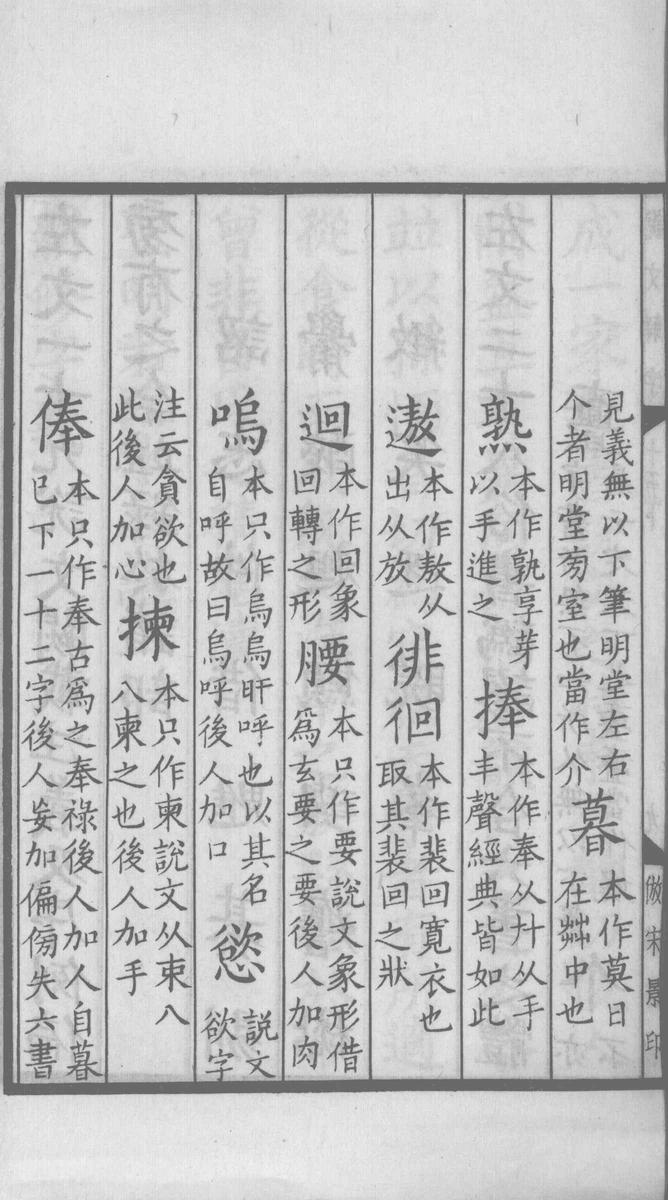 見義無以下筆明堂左右
个者明堂㫄室也當作介
暮
本作莫日
在茻中也
熟
本作孰享芽
以手進之
捧
本作奉从廾从手
丰聲經典皆如此
遨
本作敖从
出从放
徘徊
本作裴回寬衣也
取其裴回之狀
迴
本作回象
回轉之形
腰
本只作要說文象形借
爲玄要之要後人加肉
嗚
本只作烏烏旰呼也以其名
自呼故曰烏呼後人加口
慾
說文
欲字
注云貪欲也
此後人加心
揀
本只作柬說文从束八
八柬之也後人加手
俸
本只作奉古爲之奉祿後人加人自暮
已下一十二字後人妄加偏傍失六書
倣宋景印